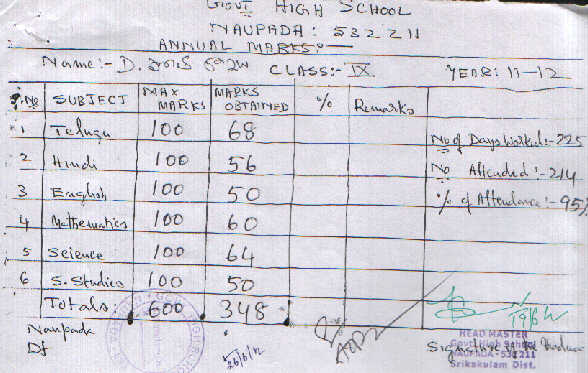 GOVT HIGH SCHOOL
NAUPADA: 532211
ANNUAL MARKS:-
Name:- D. CLASS:- IX. YEAR: 11-12
S.No SUBJECT MAX MARKS MARKS OBTAINED % Remarks
1 Telugu 100 68
No of Days Worked:- 225
2 Hindi 100 56
No Attended:- 214
3 English 50 100
% of Attendance:- 95%
4 Mathematics 100 60
5 Science 100 64
6 S. Studies 100 50
Totals. 600 348
Naupada
Dt
26/6/12
19/6/12
Signature of the
HEAD MASTER
Govt High School
NAUPADA-532211
Srikakulam Dist.